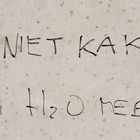 NIET KAK
H2O MEE